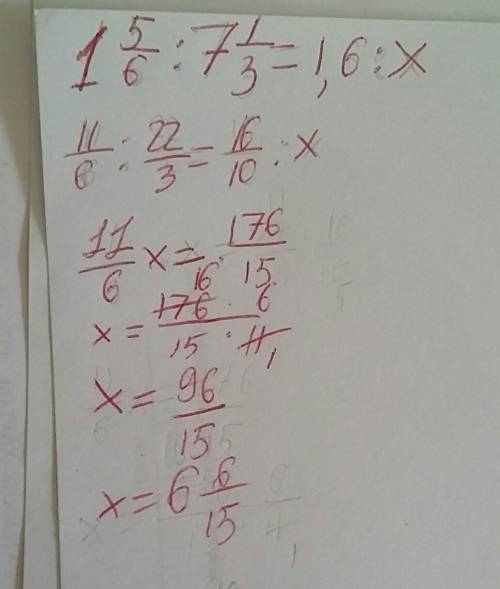 1 5/6 : 7 1/3 = 1,6 : x
11/6 : 22/3 = 16/10 : x
11/6 x = 176/15
x = 176 · 6 / 15 · 11 16 1
x = 96/15
x = 6 6/15